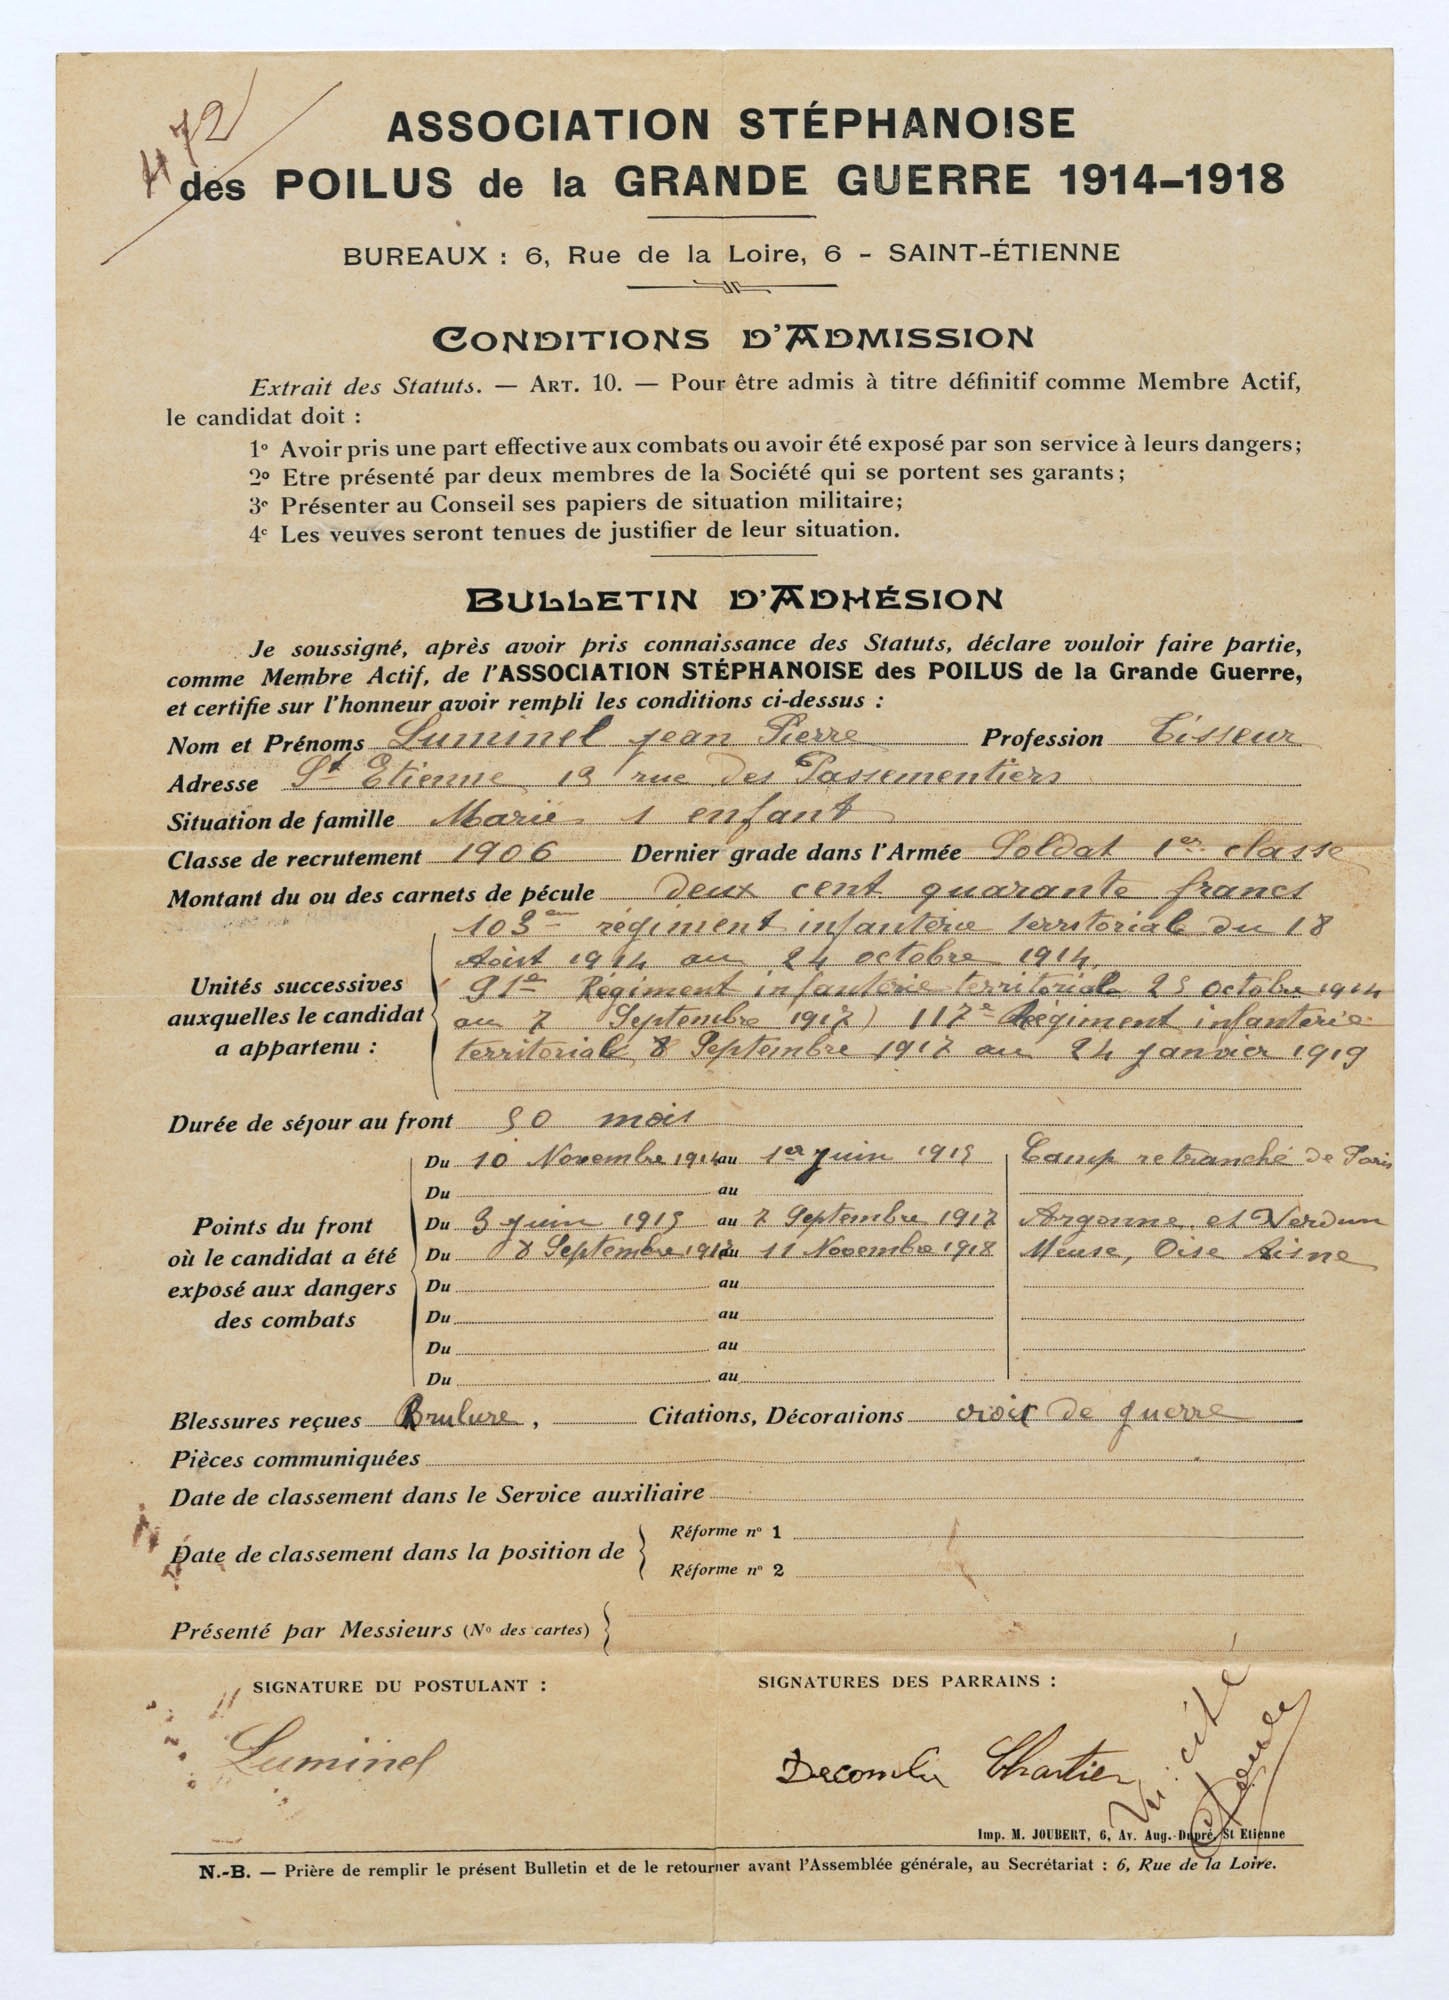 472
ASSOCIATION STÉPHANOISE
des POILUS de la GRANDE GUERRE 1914-1918
BUREAUX : 6, Rue de la Loire, 6 - SAINT-ÉTIENNE
CONDITIONS D'ADMISSION
Extrait des Statuts. — ART. 10. — Pour être admis à titre définitif comme Membre Actif,
le candidat doit :
1º Avoir pris une part effective aux combats ou avoir été exposé par son service à leurs dangers;
2º Etre présenté par deux membres de la Société qui se portent ses garants;
3e Présenter au Conseil ses papiers de situation militaire;
4e Les veuves seront tenues de justifier de leur situation.
BULLETIN D'ADHÉSION
Je soussigné, après avoir pris connaissance des Statuts, déclare vouloir faire partie,
comme Membre Actif, de l'ASSOCIATION STÉPHANOISE des POILUS de la Grande Guerre,
et certifie sur l'honneur avoir rempli les conditions ci-dessus :
Nom et Prénoms Luminel jean Pierre Profession Tisseur
Adresse St Etienne 13 rue des Passementiers
Situation de famille Marié 1 enfant
Classe de recrutement 1906 Dernier grade dans l'Armée Soldat 1er classe
Montant du ou des carnets de pécule deux cent quarante francs
Unités successives auxquelles le candidat a appartenu :
103em régiment infanterie territoriale du 18
Août 1914 au 24 octobre 1914
91e Régiment infanterie territoriale 25 octobre 1914
au 7 Septembre 1917) 117e Régiment infanterie
territoriale 8 Septembre 1917 au 24 janvier 1919
Durée de séjour au front 50 mois
Points du front où le candidat a été exposé aux dangers des combats
Du 10 Novembre 1914 au 1er juin 1915 Camp retranché de Paris
Du au
Du 3 juin 1915 au 7 Septembre 1917 Argonne et Verdun
Du 8 Septembre 1917 au 11 Novembre 1918 Meuse, Oise Aisne
Du au
Du au
Du au
Du au
Blessures reçues Brulure, Citations, Décorations croix de guerre
Pièces communiquées
Date de classement dans le Service auxiliaire
Date de classement dans la position de
Réforme nº 1
Réforme nº 2
Présenté par Messieurs (Nº des cartes)
SIGNATURE DU POSTULANT : SIGNATURES DES PARRAINS :
Luminel Chartier
Imp. M. JOUBERT, 6, Av. Aug.-Dupré, St Etienne
N.-B. — Prière de remplir le présent Bulletin et de le retourner avant l'Assemblée générale, au Secrétariat : 6, Rue de la Loire.